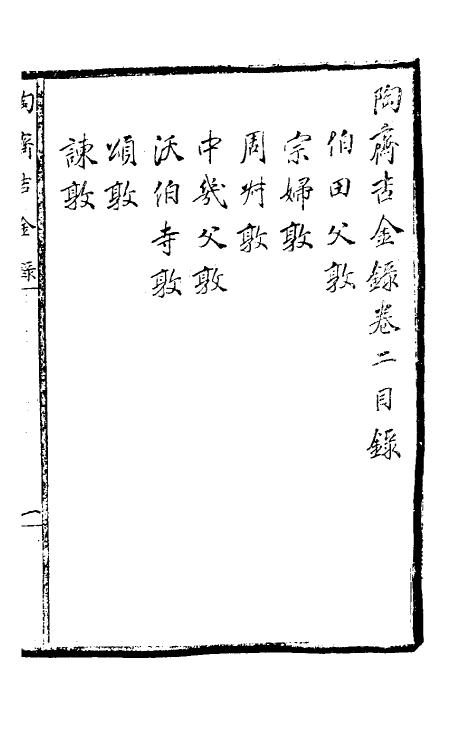 陶齋吉金錄卷二目錄
伯田父敦
宗婦敦
周艸敦
中幾父敦
沃伯寺敦
頌敦
諫敦
陶齋吉金錄